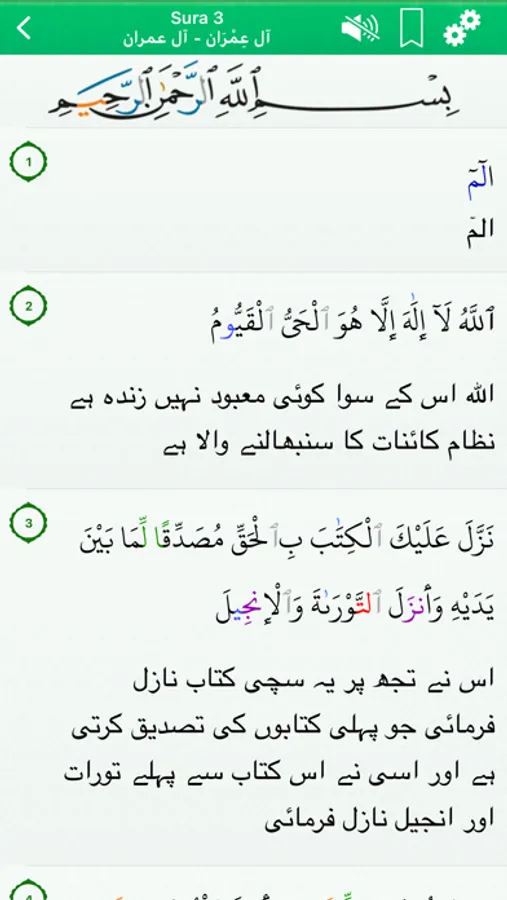 Sura 3
آل عِمْرَان - آل عمران
بِسْمِ ٱللَّهِ ٱلرَّحْمَٰنِ ٱلرَّحِيمِ
1
الٓمٓ
الٓمّ
2
ٱللَّهُ لَآ إِلَٰهَ إِلَّا هُوَ ٱلْحَىُّ ٱلْقَيُّومُ
الله اس کے سوا کوئی معبود نہیں زندہ ہے
نظام کائنات کا سنبھالنے والا ہے
3
نَزَّلَ عَلَيْكَ ٱلْكِتَٰبَ بِٱلْحَقِّ مُصَدِّقًا لِّمَا بَيْنَ
يَدَيْهِ وَأَنزَلَ ٱلتَّوْرَىٰةَ وَٱلْإِنجِيلَ
اس نے تجھ پر یہ سچی کتاب نازل
فرمائی جو پہلی کتابوں کی تصدیق کرتی
ہے اور اسی نے اس کتاب سے پہلے تورات
اور انجیل نازل فرمائی